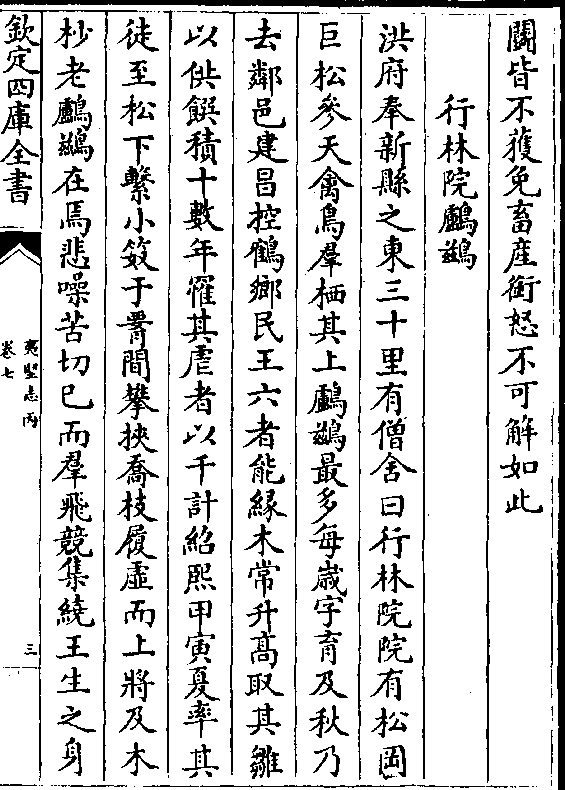 闕皆不獲免畜産銜怒不可解如此
行林院鸕鷀
洪府奉新縣之東三十里有僧舍曰行林院院有松岡
巨松參天禽鳥羣栖其上鸕鷀最多每歳字育及秋乃
去鄰邑建昌控鶴鄉民王六者能緣木常升髙取其雛
以供饌積十數年罹其虐者以千計紹熙甲寅夏率其
徒至松下繫小笯于腰間攀挾喬枝履虛而上將及木
杪老鸕鷀在焉悲噪苦切已而羣飛競集繞王生之身
欽定四庫全書
夷堅志丙
卷七
三